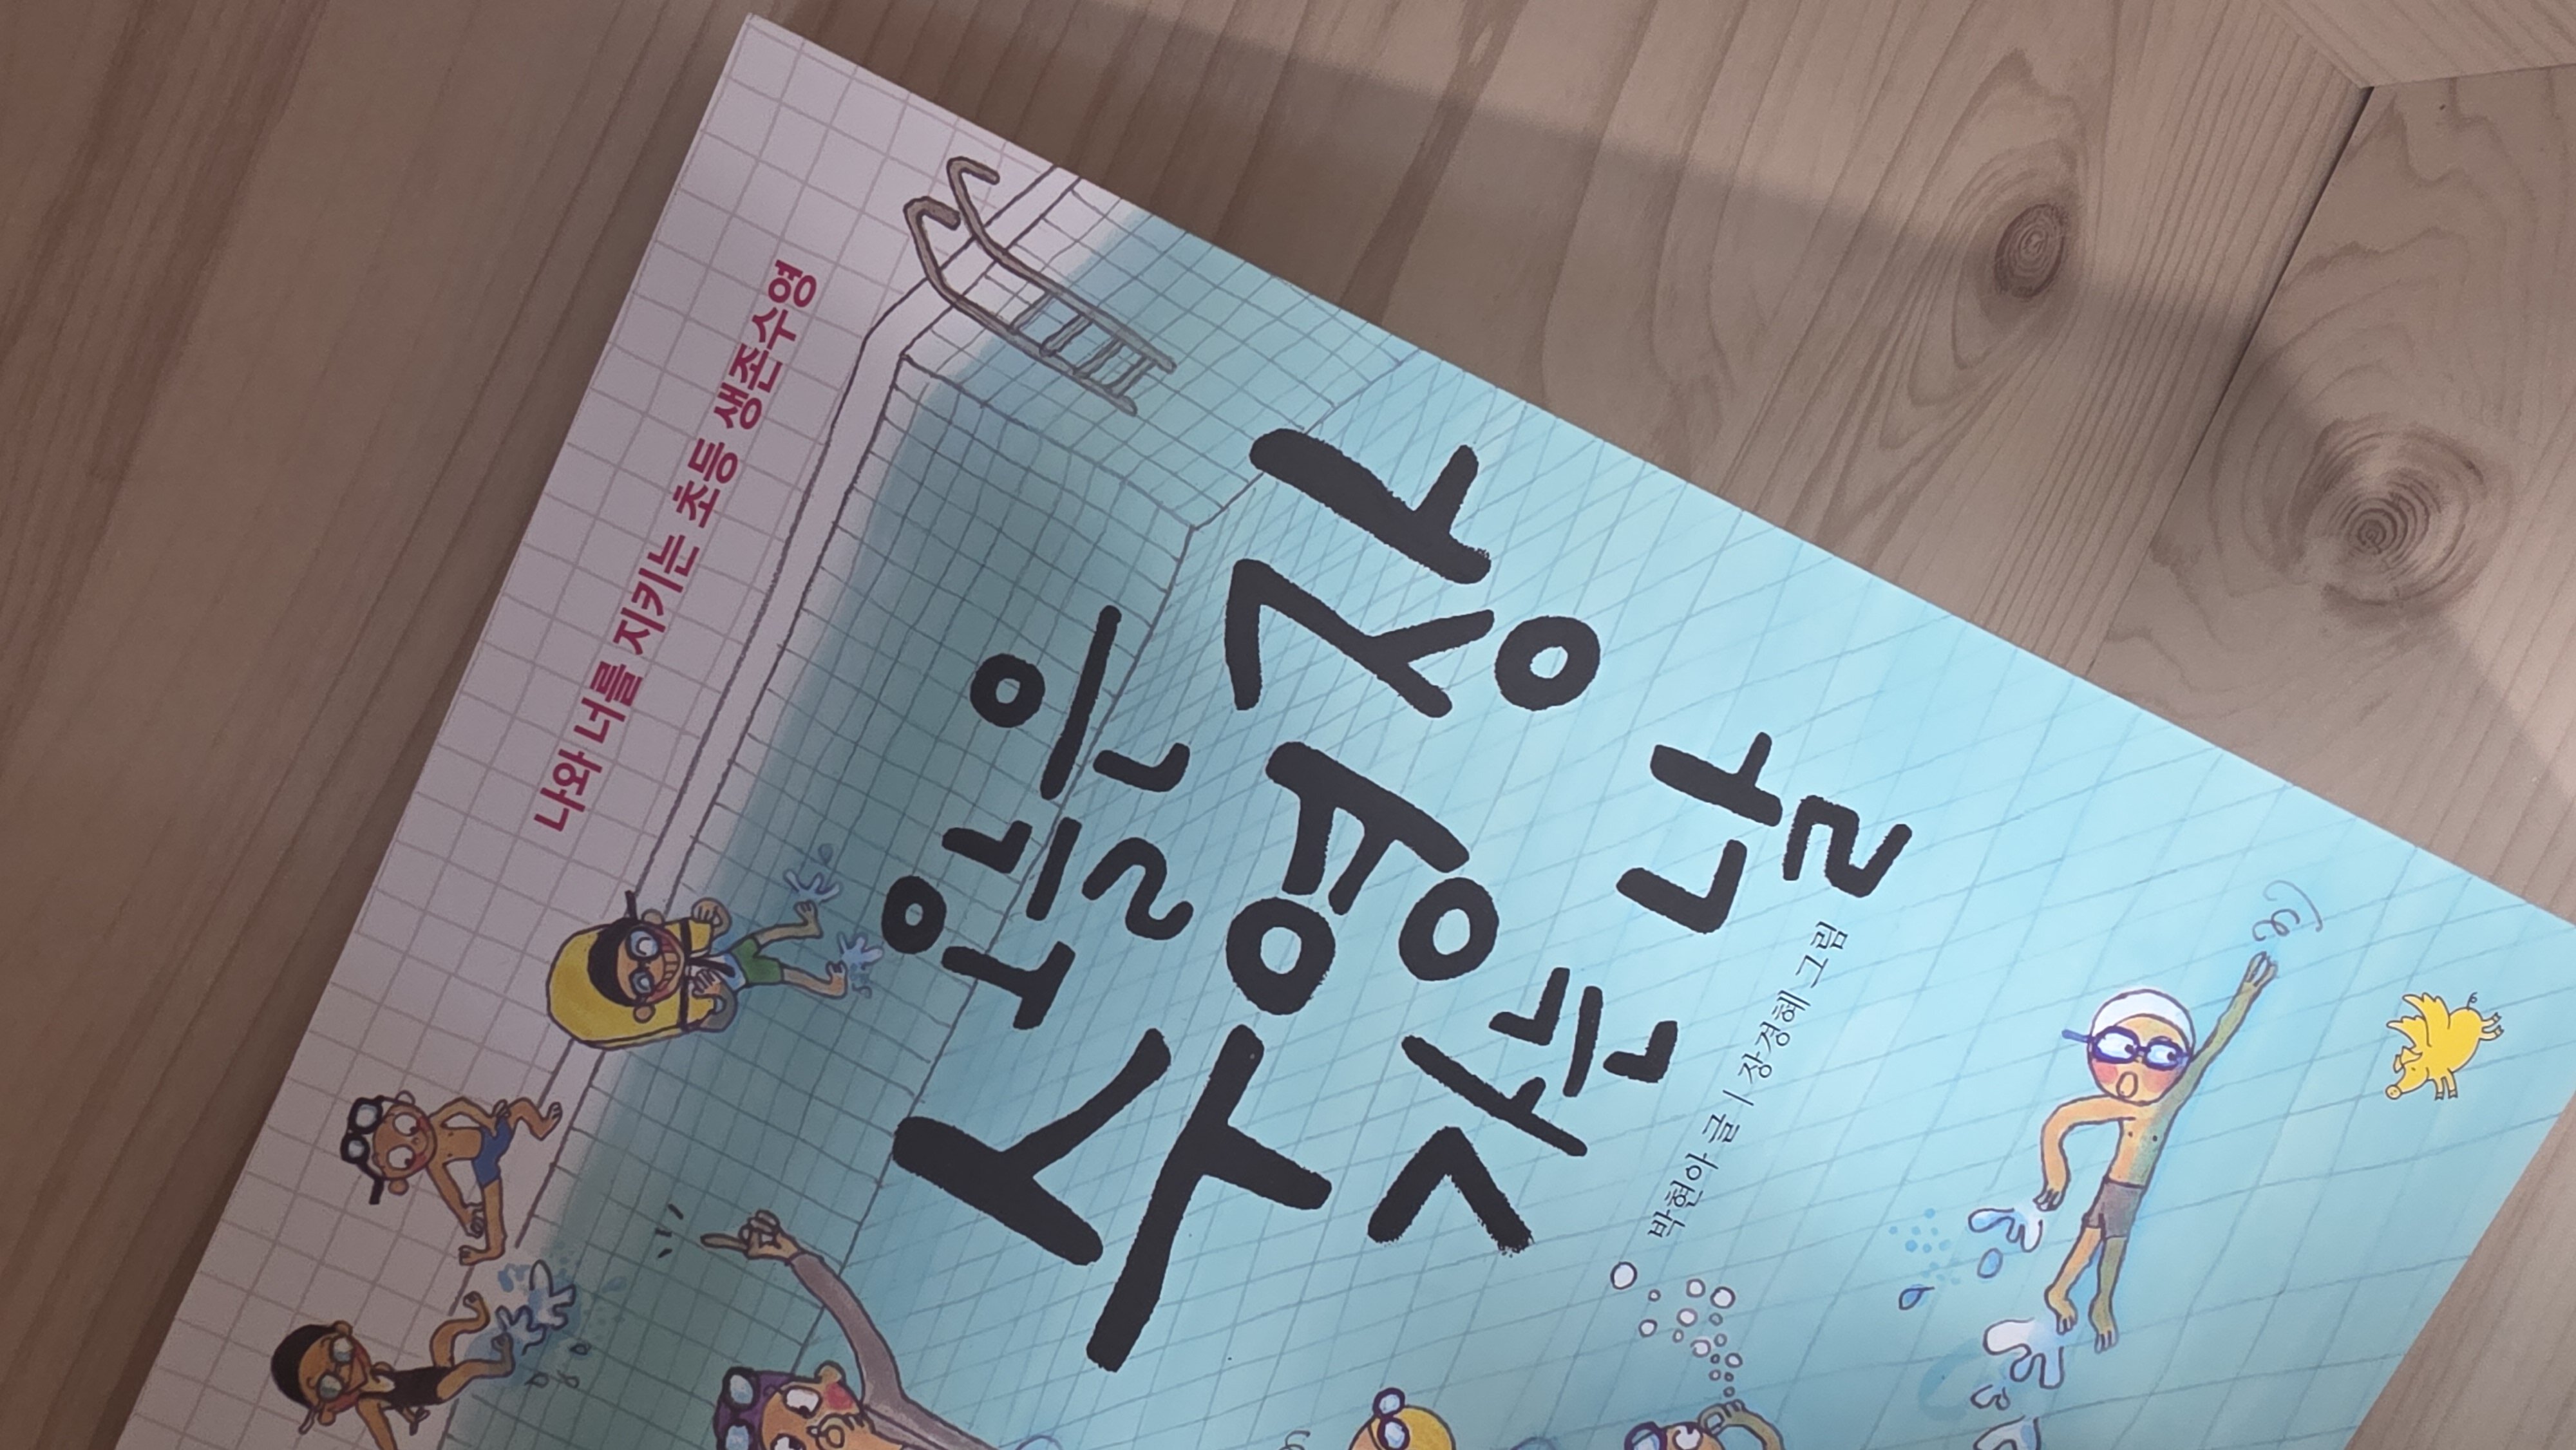 나와 너를 지키는 초등 생존수영
오늘은
수영장
가는 날
박현아 글 | 장경혜 그림